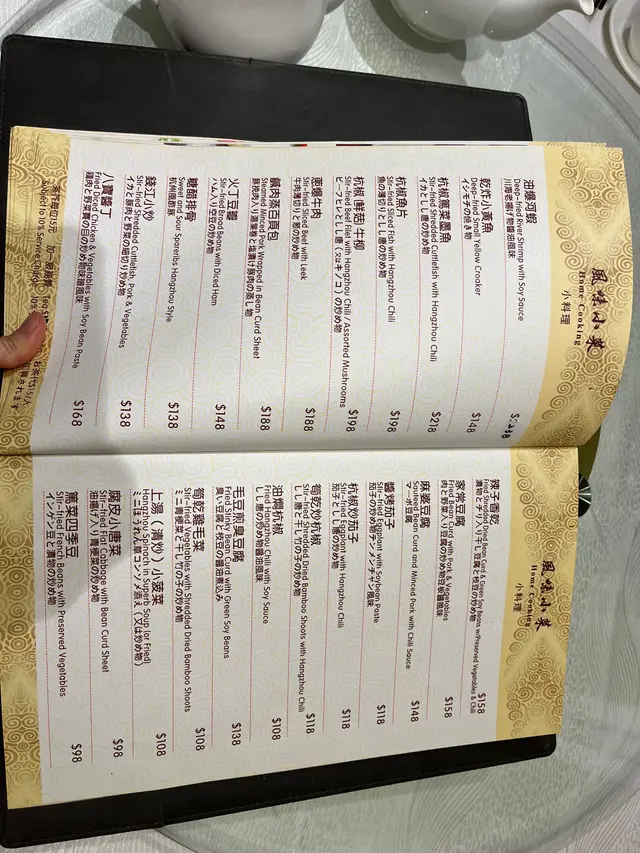 風味小菜
Home Cooking
小料理
油爆河蝦
Deep-fried River Shrimp with Soy Sauce
川海老揚げ物醬油風味
乾炸小黃魚 $148
Deep-fried Small Yellow Croaker
イシモチの焼き物
杭椒篤菜墨魚 $218
Stir-fried Shredded Cuttlefish with Hangzhou Chili
イカとしし唐の炒め物
杭椒魚片 $198
Stir-fried Sliced Fish with Hangzhou Chili
魚の薄切りとしし唐の炒め物
杭椒(鮮菇)牛柳 $198
Stir-fried Beef Filet with Hangzhou Chili / Assorted Mushrooms
ビーフとしし唐(又はキノコ)の炒め物
蔥爆牛肉 $188
Stir-fried Sliced Beef with Leek
牛肉薄切りと葱の炒め物
鹹肉蒸百頁包 $188
Steamed Minced Pork Wrapped in Bean Curd Sheet
火丁豆瓣 $148
Stir-fried Broad Beans with Diced Ham
ハムと空豆の炒め物
糖醋排骨 $138
Sweet and Sour Spareribs Hangzhou Style
杭州風酢豚
錢江小炒 $138
Stir-fried Shredded Cuttlefish, Pork & Vegetables
イカと豚肉と野菜の細切り炒め物
八寶醬丁 $168
Fried Diced Chicken & Vegetables with Soy Bean Paste
鶏肉と野菜賽の目の炒め物味噌風味
茶芥每位15元 加一服務費
Subject to 10% Service Charge
風味小菜
Home Cooking
小料理
辣子香乾 $158
Stir-fried Shredded Dried Bean Curd & Green Soy Beans w/Preserved Vegetables & Chili
家常豆腐 $158
Fried Bean Curd with Pork & Vegetables
肉と野菜入り豆腐の炒め物豆板醬風味
麻婆豆腐 $148
Sauteed Bean Curd and Minced Pork with Chili Sauce
マーボ豆腐
醬烤茄子 $118
Stir-fried Eggplant with Soybean Paste
茄子の炒め物テンメンチャン風味
杭椒炒茄子 $118
Stir-fried Eggplant with Hangzhou Chili
茄子としし唐の炒め物
筍乾炒杭椒 $118
Stir-fried Shredded Dried Bamboo Shoots with Hangzhou Chili
しし唐と干し竹の子の炒め物
油燜杭椒 $108
Fried Hangzhou Chili with Soy Sauce
しし唐の炒め物醬油風味
毛豆煎臭豆腐 $138
Fried Stinky Bean Curd with Green Soy Beans
臭い豆腐と枝豆の醬油煮込み
筍乾雞毛菜 $108
Stir-fried Vegetables with Shredded Dried Bamboo Shoots
ミニ青梗菜と干し竹の子の炒め物
上湯(清炒)小菠菜 $108
Hangzhou Spinach in Superb Soup (or Fried)
ミニほうれん草コンソメ添え(又は炒め物)
腐皮小唐菜 $98
Stir-fried Flat Cabbage with Bean Curd Sheet
油揚げ入り青梗菜の炒め物
篤菜四季豆 $98
Stir-fried French Beans with Preserved Vegetables
インゲン豆と漬物の炒め物